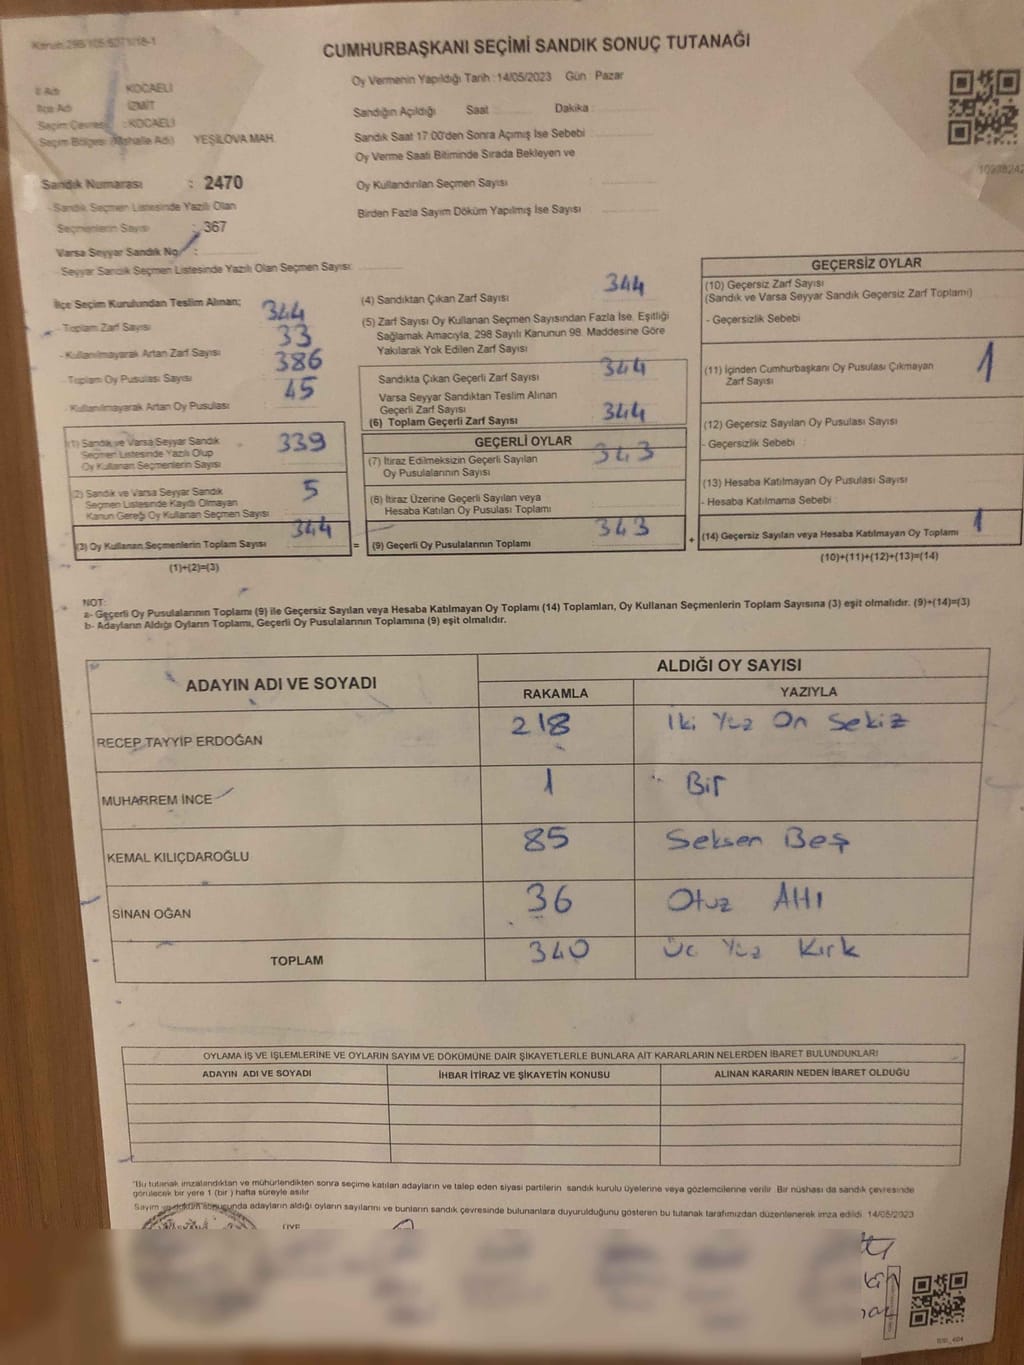 CUMHURBAŞKANI SEÇİMİ SANDIK SONUÇ TUTANAĞI
Oy Vermenin Yapıldığı Tarih : 14/05/2023 Gün : Pazar
İl Adı KOCAELİ
İlçe Adı İZMİT
Seçim Çevresi : KOCAELİ
Seçim Bölgesi (Mahalle Adı) YEŞİLOVA MAH.
Sandık Numarası : 2470
- Sandık Seçmen Listesinde Yazılı Olan
Seçmenlerin Sayısı : 367
Varsa Seyyar Sandık No :
- Seyyar Sandık Seçmen Listesinde Yazılı Olan Seçmen Sayısı:
Sandığın Açıldığı Saat Dakika :
Sandık Saat 17:00'den Sonra Açımış İse Sebebi :
Oy Verme Saati Bitiminde Sırada Bekleyen ve
Oy Kullandırılan Seçmen Sayısı
Birden Fazla Sayım Döküm Yapılmış İse Sayısı
İlçe Seçim Kurulundan Teslim Alınan;
- Toplam Zarf Sayısı 344
- Kullanılmayarak Artan Zarf Sayısı 33
- Toplam Oy Pusulası Sayısı 386
- Kullanılmayarak Artan Oy Pusulası 45
(1) Sandık ve Varsa Seyyar Sandık
Seçmen Listesinde Yazılı Olup
Oy Kullanan Seçmenlerin Sayısı 339
(2) Sandık ve Varsa Seyyar Sandık
Seçmen Listesinde Kayıtlı Olmayan
Kanun Gereği Oy Kullanan Seçmen Sayısı 5
(3) Oy Kullanan Seçmenlerin Toplam Sayısı 344
(1)+(2)=(3)
(4) Sandıktan Çıkan Zarf Sayısı 344
(5) Zarf Sayısı Oy Kullanan Seçmen Sayısından Fazla İse, Eşitliği
Sağlamak Amacıyla, 298 Sayılı Kanunun 98. Maddesine Göre
Yakılarak Yok Edilen Zarf Sayısı
Sandıkta Çıkan Geçerli Zarf Sayısı 344
Varsa Seyyar Sandıktan Teslim Alınan
Geçerli Zarf Sayısı
(6) Toplam Geçerli Zarf Sayısı 344
GEÇERLİ OYLAR
(7) İtiraz Edilmeksizin Geçerli Sayılan
Oy Pusulalarının Sayısı 343
(8) İtiraz Üzerine Geçerli Sayılan veya
Hesaba Katılan Oy Pusulası Toplamı
= (9) Geçerli Oy Pusulalarının Toplamı 343 +
GEÇERSİZ OYLAR
(10) Geçersiz Zarf Sayısı
(Sandık ve Varsa Seyyar Sandık Geçersiz Zarf Toplamı)
- Geçersizlik Sebebi
(11) İçinden Cumhurbaşkanı Oy Pusulası Çıkmayan
Zarf Sayısı 1
(12) Geçersiz Sayılan Oy Pusulası Sayısı
- Geçersizlik Sebebi
(13) Hesaba Katılmayan Oy Pusulası Sayısı
- Hesaba Katılmama Sebebi
(14) Geçersiz Sayılan veya Hesaba Katılmayan Oy Toplamı 1
(10)+(11)+(12)+(13)=(14)
NOT:
a- Geçerli Oy Pusulalarının Toplamı (9) ile Geçersiz Sayılan veya Hesaba Katılmayan Oy Toplamı (14) Toplamları, Oy Kullanan Seçmenlerin Toplam Sayısına (3) eşit olmalıdır. (9)+(14)=(3)
b- Adayların Aldığı Oyların Toplamı, Geçerli Oy Pusulalarının Toplamına (9) eşit olmalıdır.
ADAYIN ADI VE SOYADI ALDIĞI OY SAYISI
RAKAMLA YAZIYLA
RECEP TAYYİP ERDOĞAN 218 İki Yüz On Sekiz
MUHARREM İNCE 1 Bir
KEMAL KILIÇDAROĞLU 85 Seksen Beş
SİNAN OĞAN 36 Otuz Altı
TOPLAM 340 Üç Yüz Kırk
OYLAMA İŞ VE İŞLEMLERİNE VE OYLARIN SAYIM VE DÖKÜMÜNE DAİR ŞİKAYETLERLE BUNLARA AİT KARARLARIN NELERDEN İBARET BULUNDUKLARI
ADAYIN ADI VE SOYADI İHBAR İTİRAZ VE ŞİKAYETİN KONUSU ALINAN KARARIN NEDEN İBARET OLDUĞU
"Bu tutanak imzalandıktan ve mühürlendikten sonra seçime katılan adayların ve talep eden siyasi partilerin sandık kurulu üyelerine veya gözlemcilerine verilir. Bir nüshası da sandık çevresinde
görülecek bir yere 1 (bir) hafta süreyle asılır
Sayım ve döküm sonucunda adayların aldığı oyların sayılarını ve bunların sandık çevresinde bulunanlara duyurulduğunu gösteren bu tutanak tarafımızdan düzenlenerek imza edildi. 14/05/2023
ÜYE